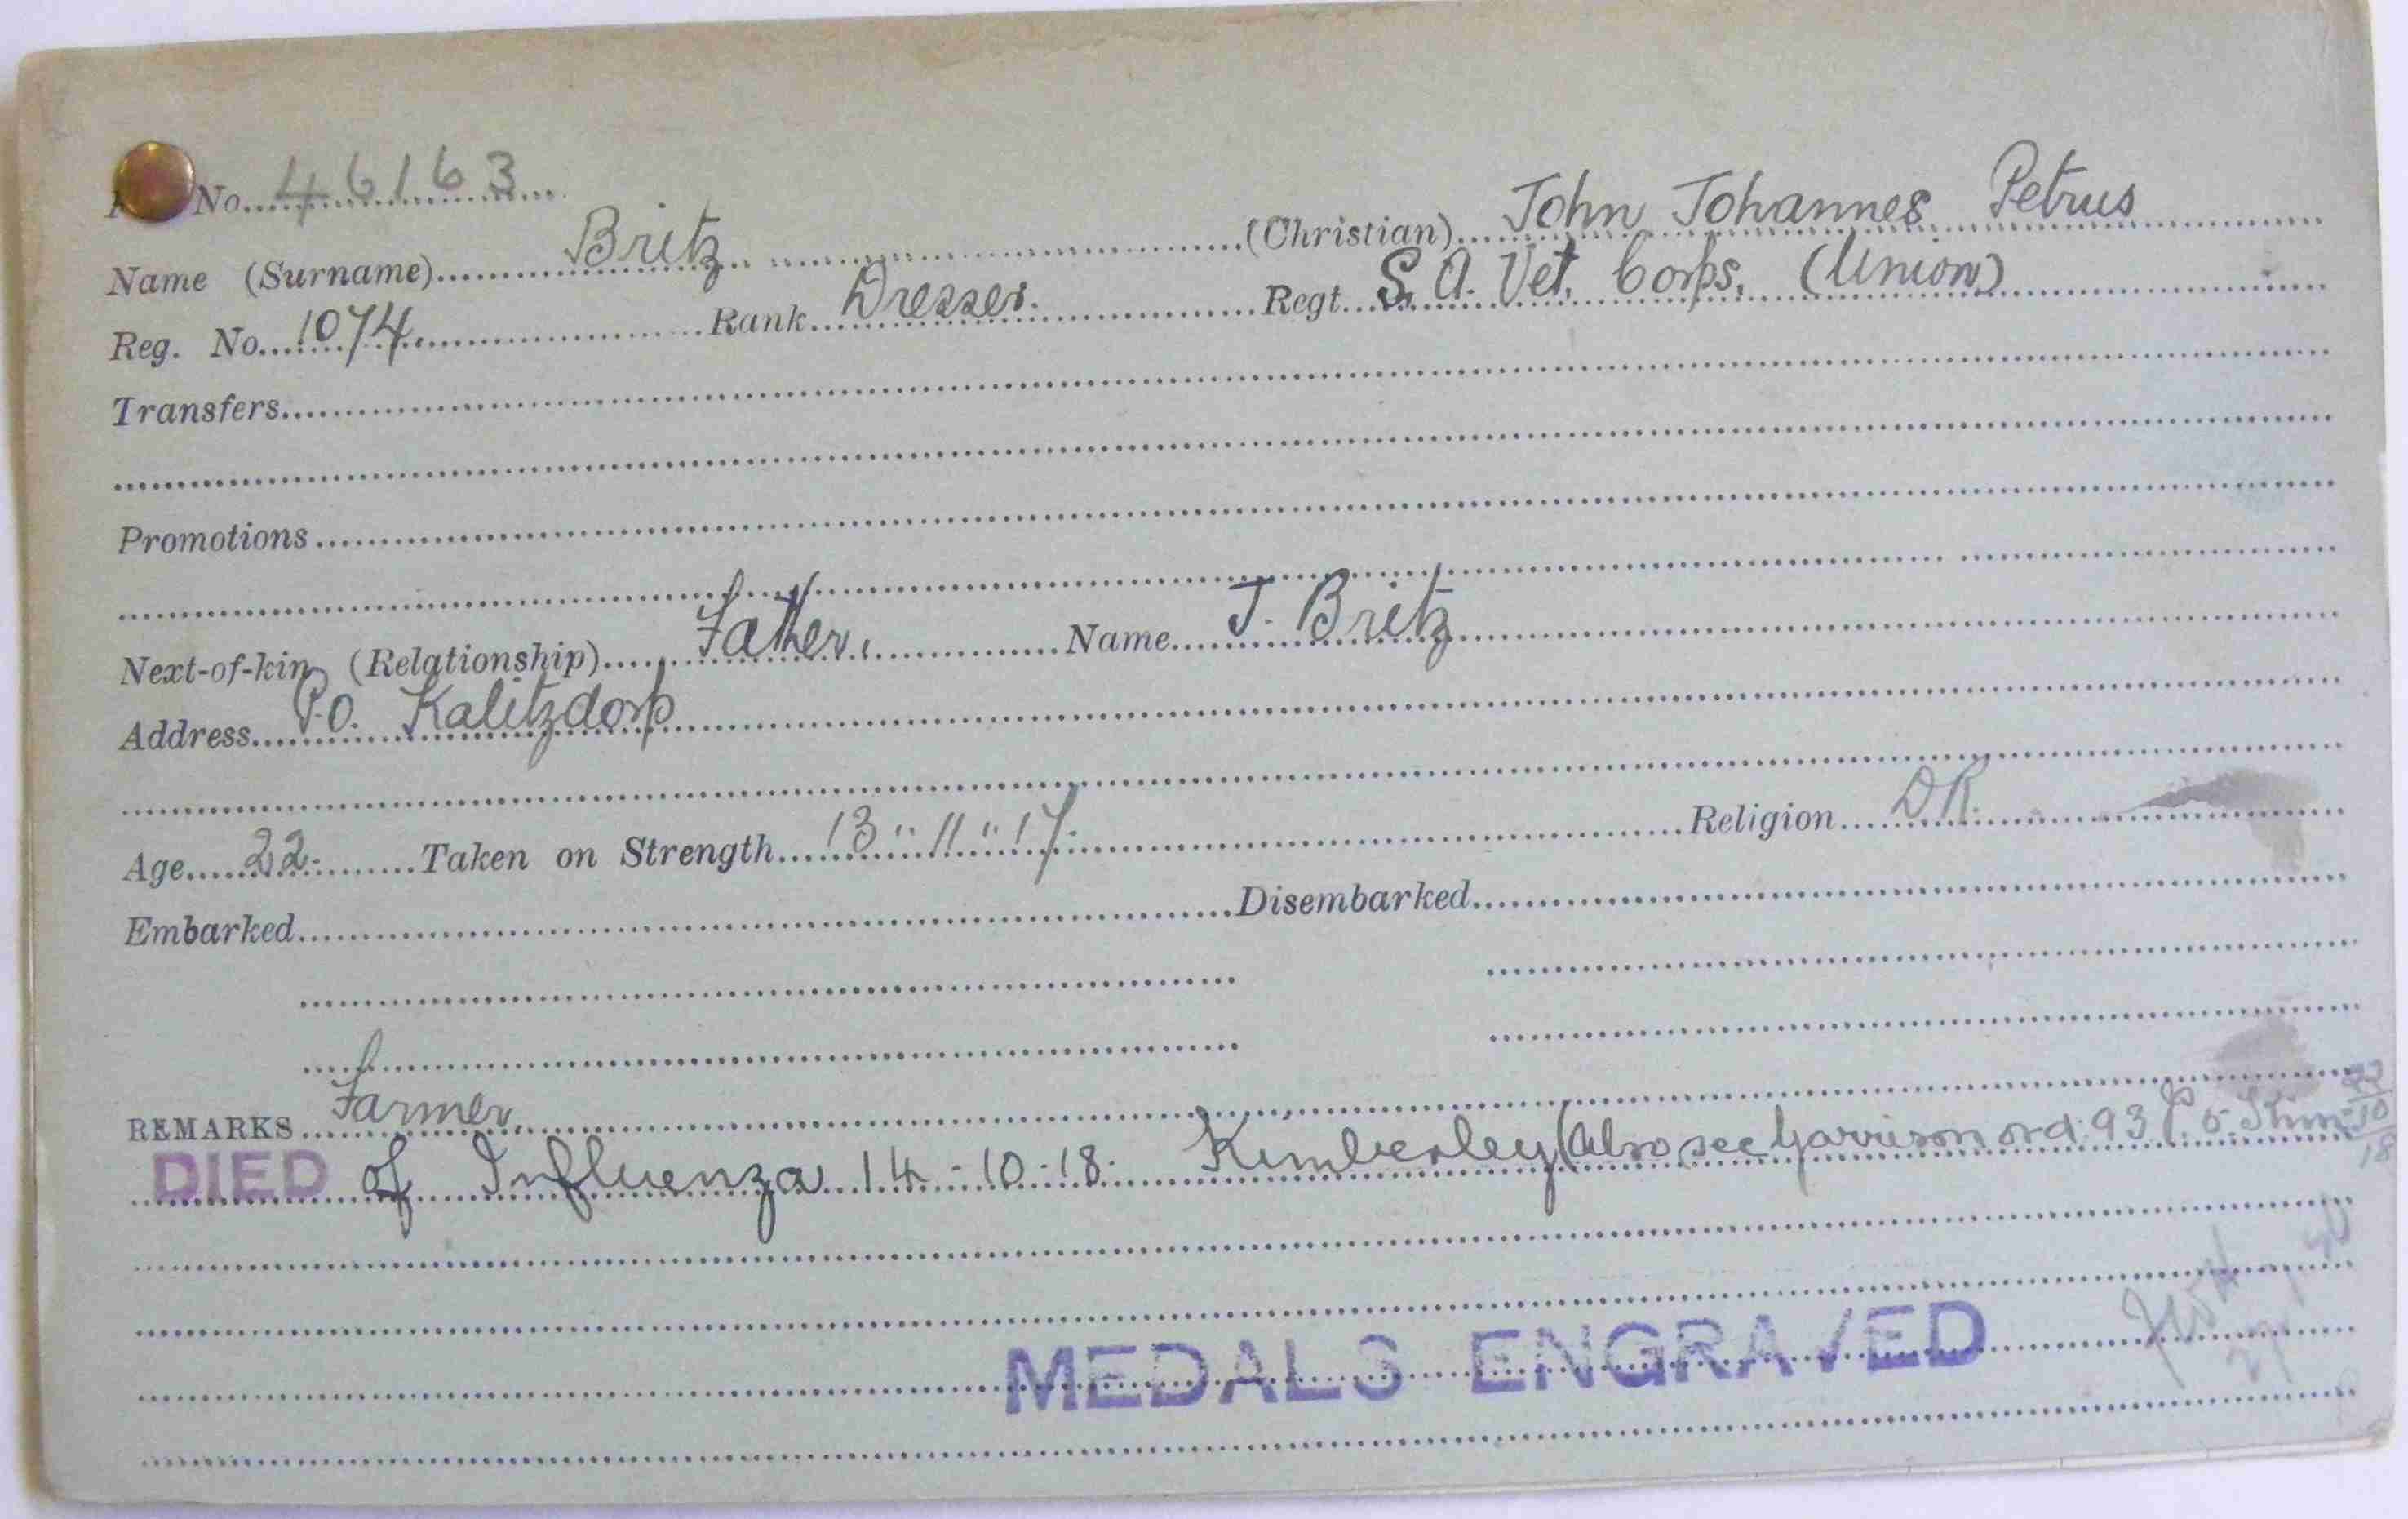 No. 46163
Name (Surname) Britz (Christian) John Johannes Petrus
Reg. No. 1074. Rank Dresser. Regt. S.A. Vet. Corps. (Union)
Transfers
Promotions
Next-of-kin (Relationship) Father. Name J. Britz
Address P.O. Kalitzdorp
Age 22. Taken on Strength 13"11"17. Religion D.R.
Embarked Disembarked
REMARKS Farmer.
DIED of Influenza 14-10-18. Kimberley (Also see Garrison ord. 93
MEDALS ENGRAVED